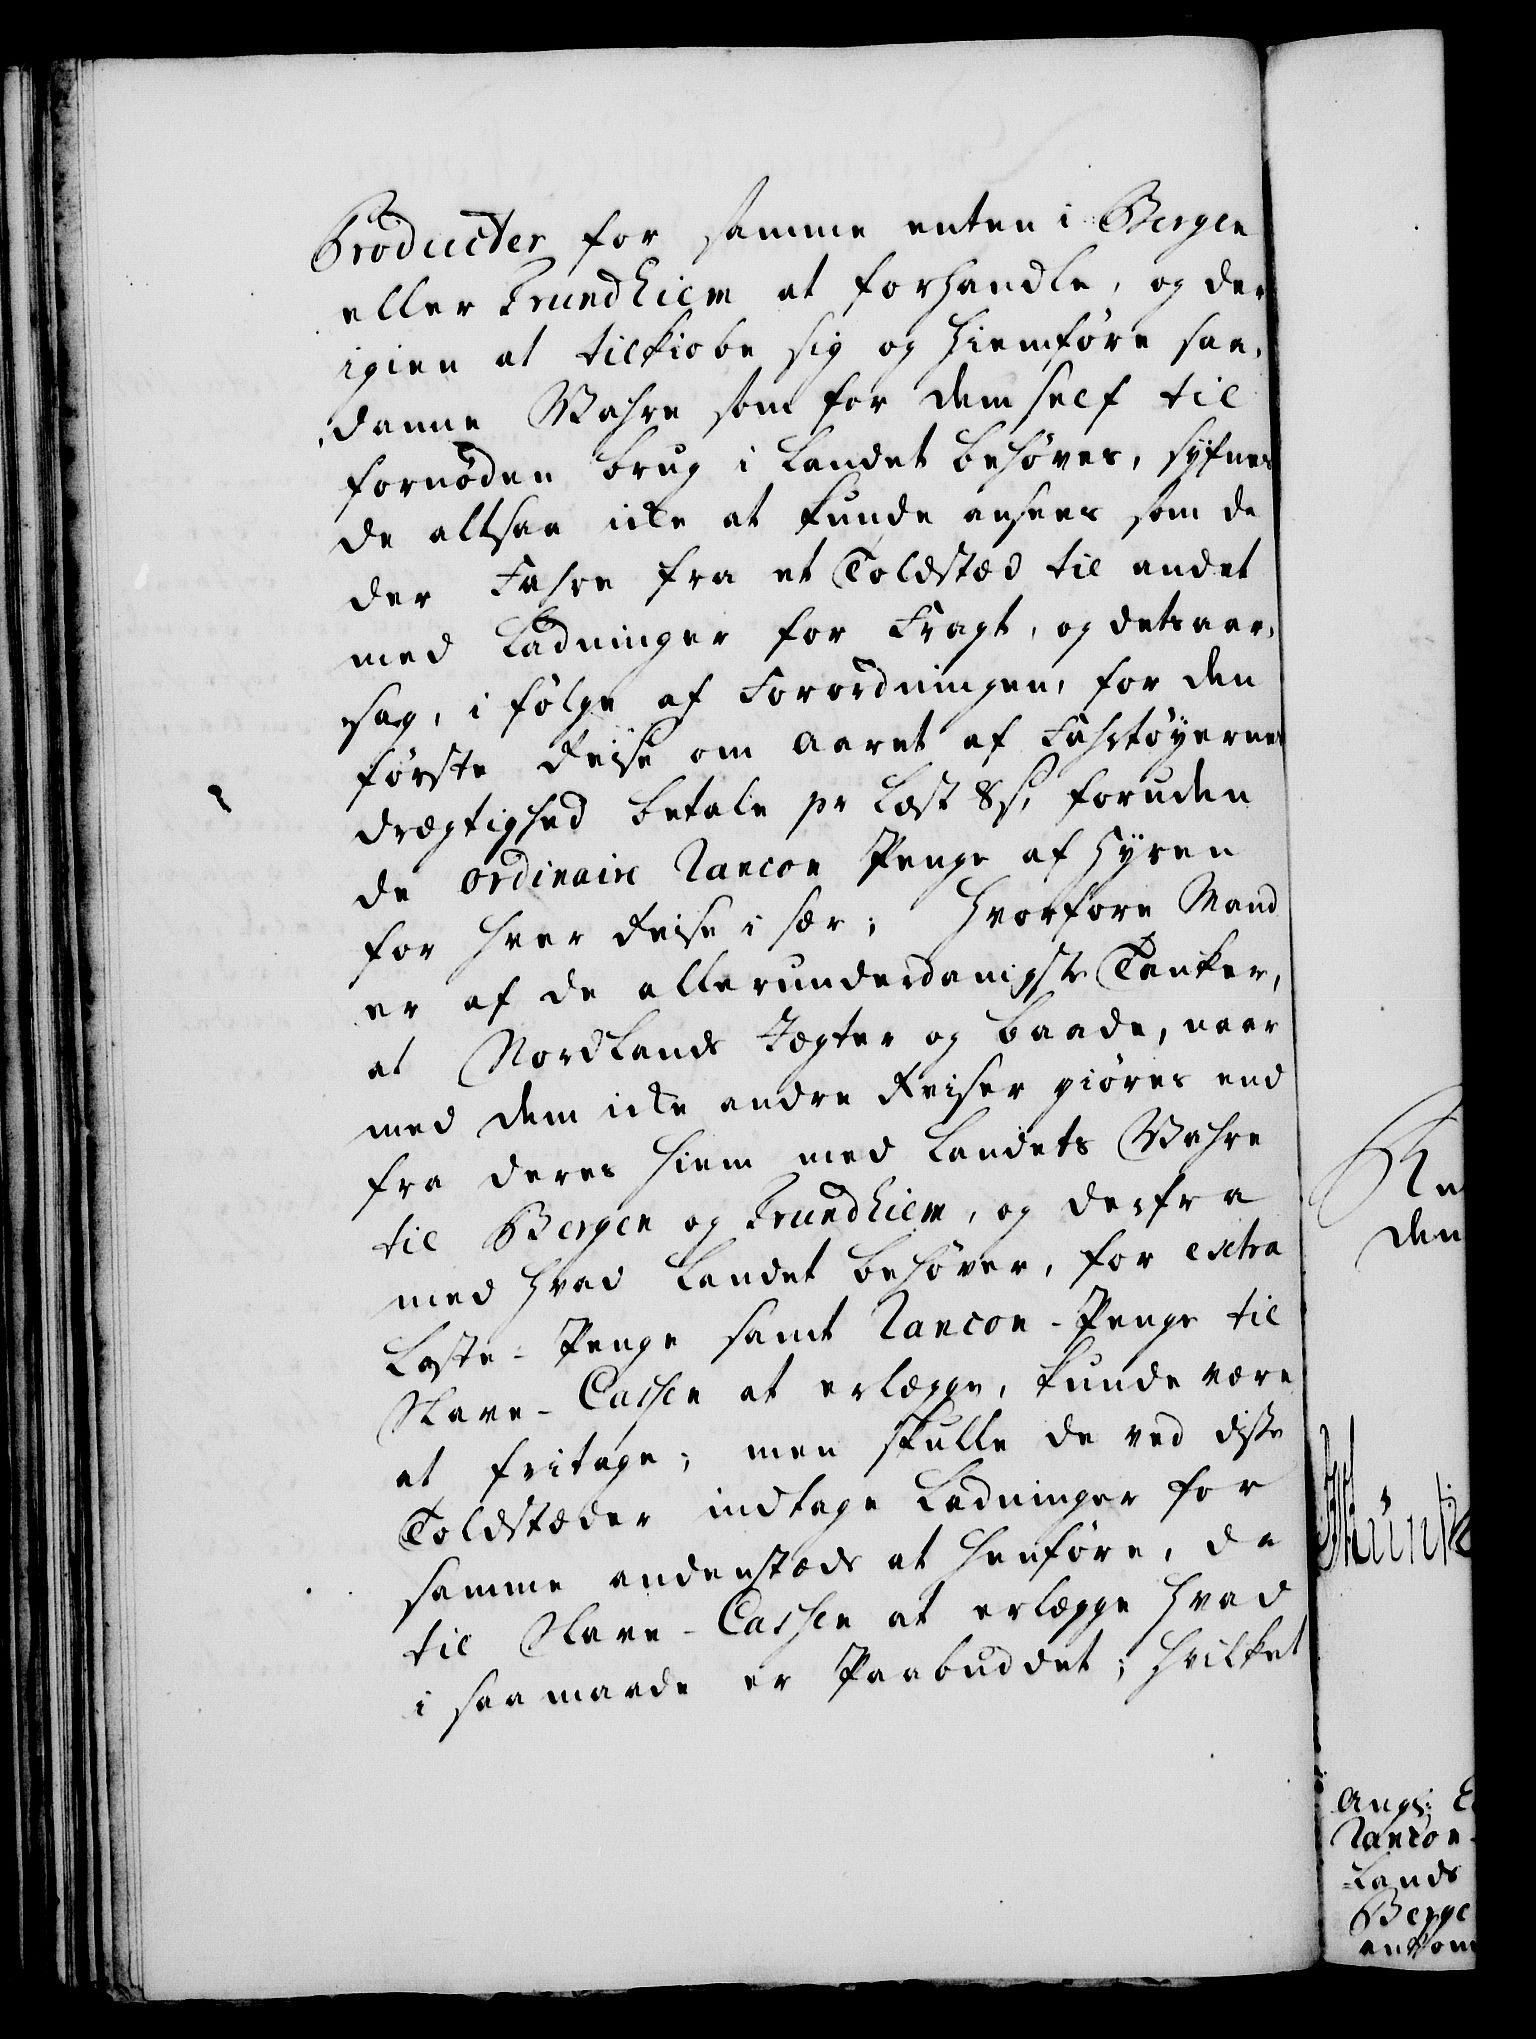 Producter for samme enten i Bergen
eller Trundhiem at forhandle, og der
igien at tilkiøbe sig og hiemføre saa,
danne Wahre som for dem self til
fornøden brug i Landet behøves, syfnes
de altsaa icke at kunde ansees som de
der Fahre fra et Toldstæd til andet
med Ladninger for Fragt, og detsaar,
sag, i følge af Forordningen, for den
første Reise om Aaret af Fahrtøyernes
drægtighed betale pr Læst 8 s, foruden
de ordinaire Rancon Penge af Hyren
for hver Reise i sær; Hvorfore Mand
er af de allerunderdanigste Tanker,
at Nordlands Jægter og baade, naar
med dem icke andre Reiser giøres end
fra deres Hiem med Landets Wahre
til Bergen og Trundhiem, og derfra
med hvad Landet behøver, for extra
Læste-Penge samt Rancon-Penge til
Slave-Cassen at erlægge, kunde være
at fritage; men skulle de ved disse
Toldstæder indtage Ladninger for
samme andenstæds at henføre, da
til Slave-Cassen at erlægge hvad
i saa maade er Paabuddet; hvilket
den
Rancon-
Lands
Berge
ankom